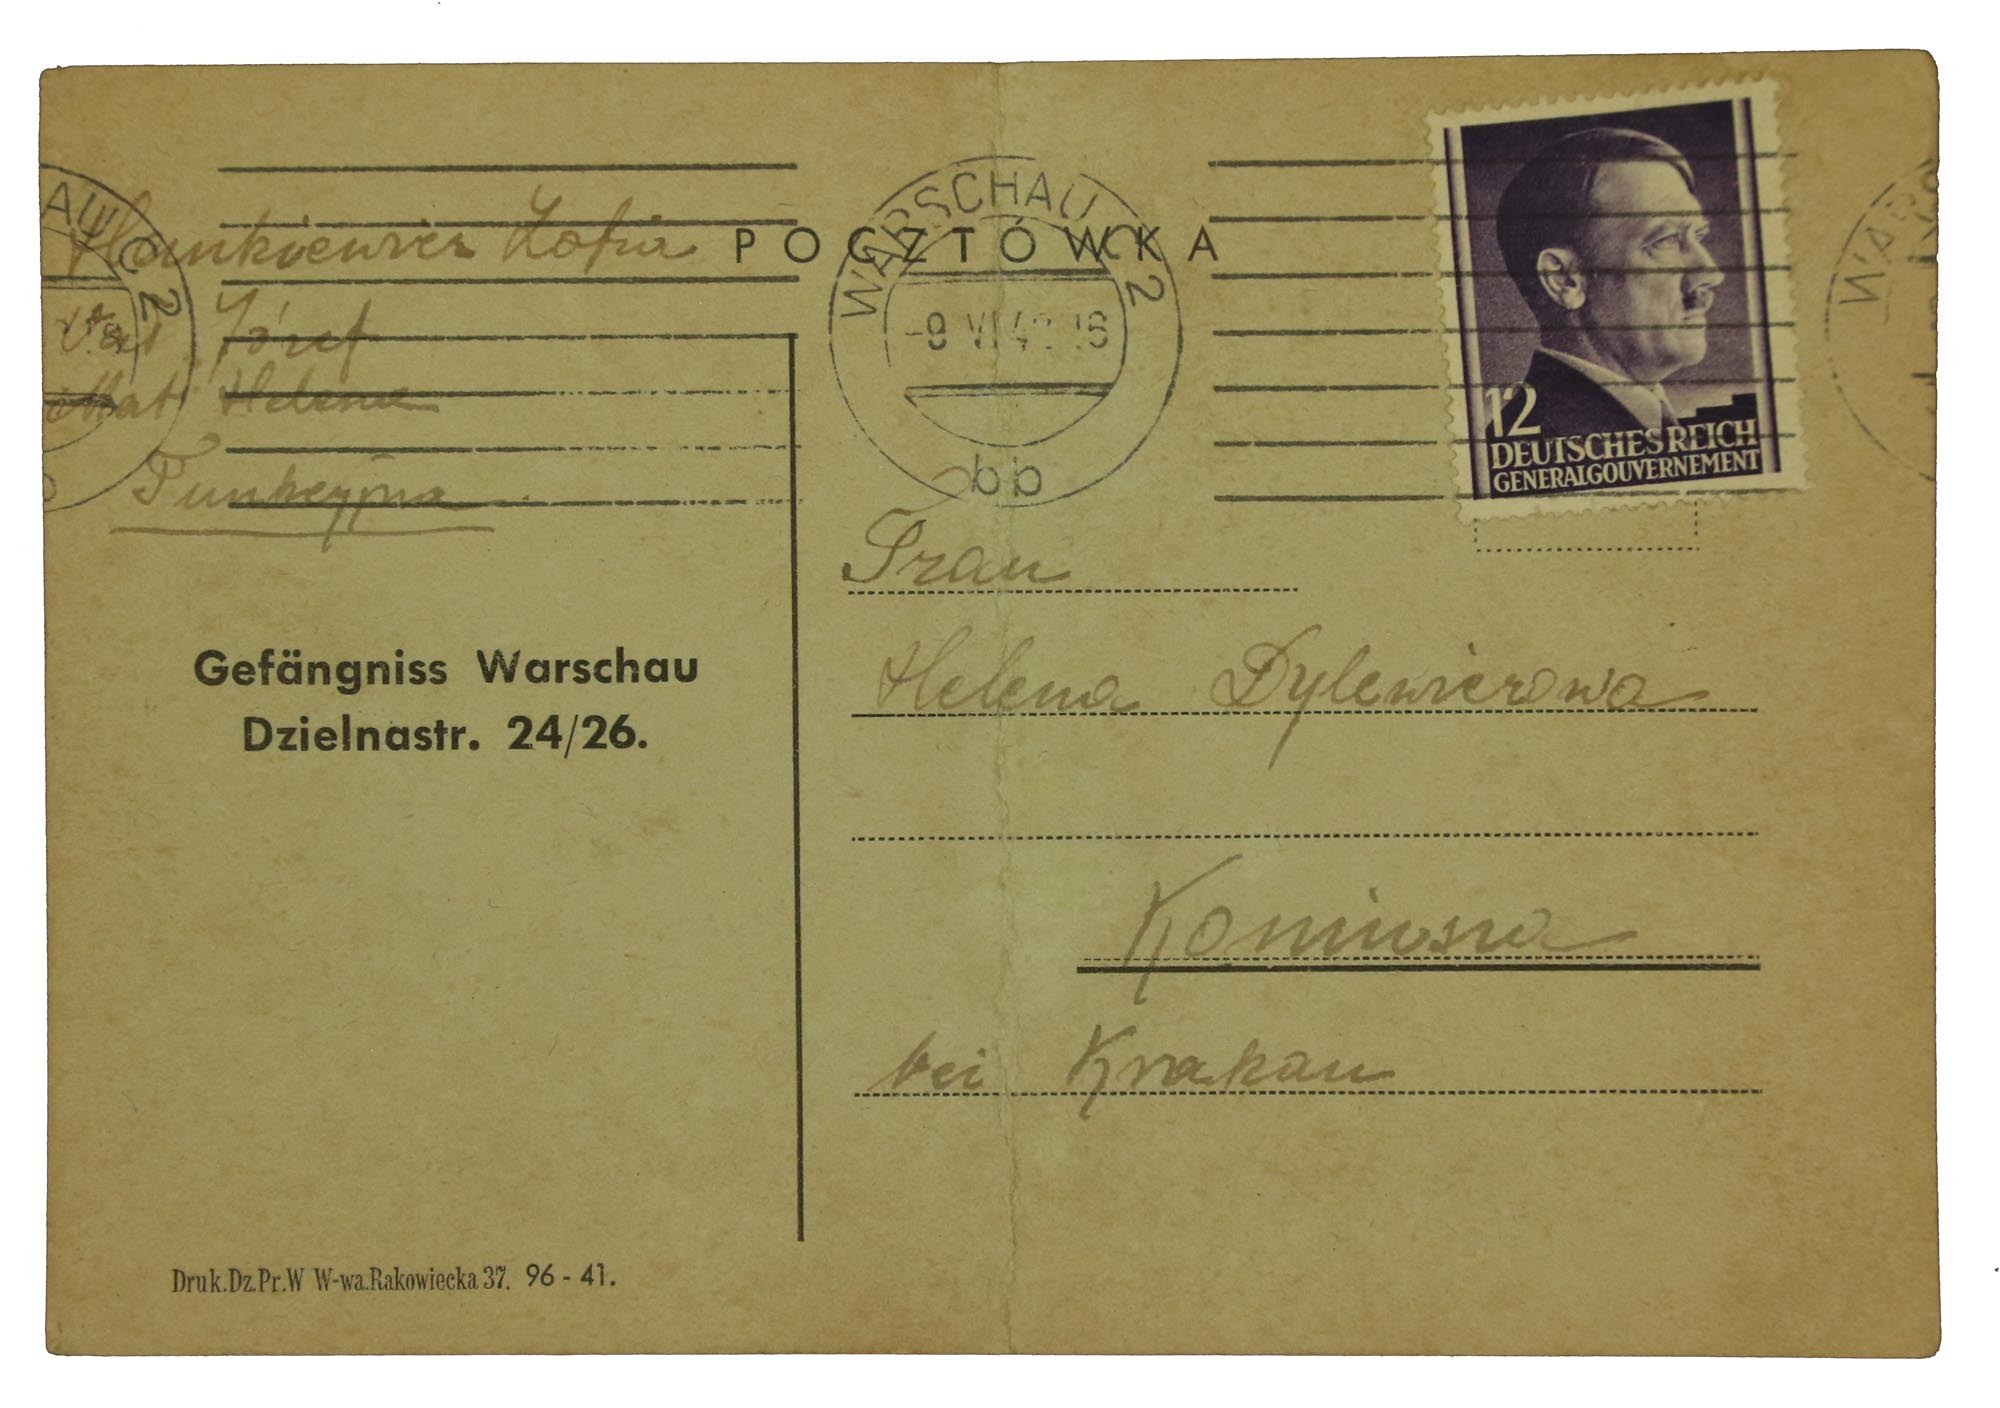 Zofia
POCZTÓWKA
WARSCHAU C2
-9.VI.42.16
bb
AU C2
WARS
Józef
Helena
12
DEUTSCHES REICH
GENERALGOUVERNEMENT
Frau
Helena Dylewiczowa
Gefängniss Warschau
Dzielnastr. 24/26.
bei Krakau
Druk.Dz.Pr.W W-wa.Rakowiecka 37. 96 - 41.